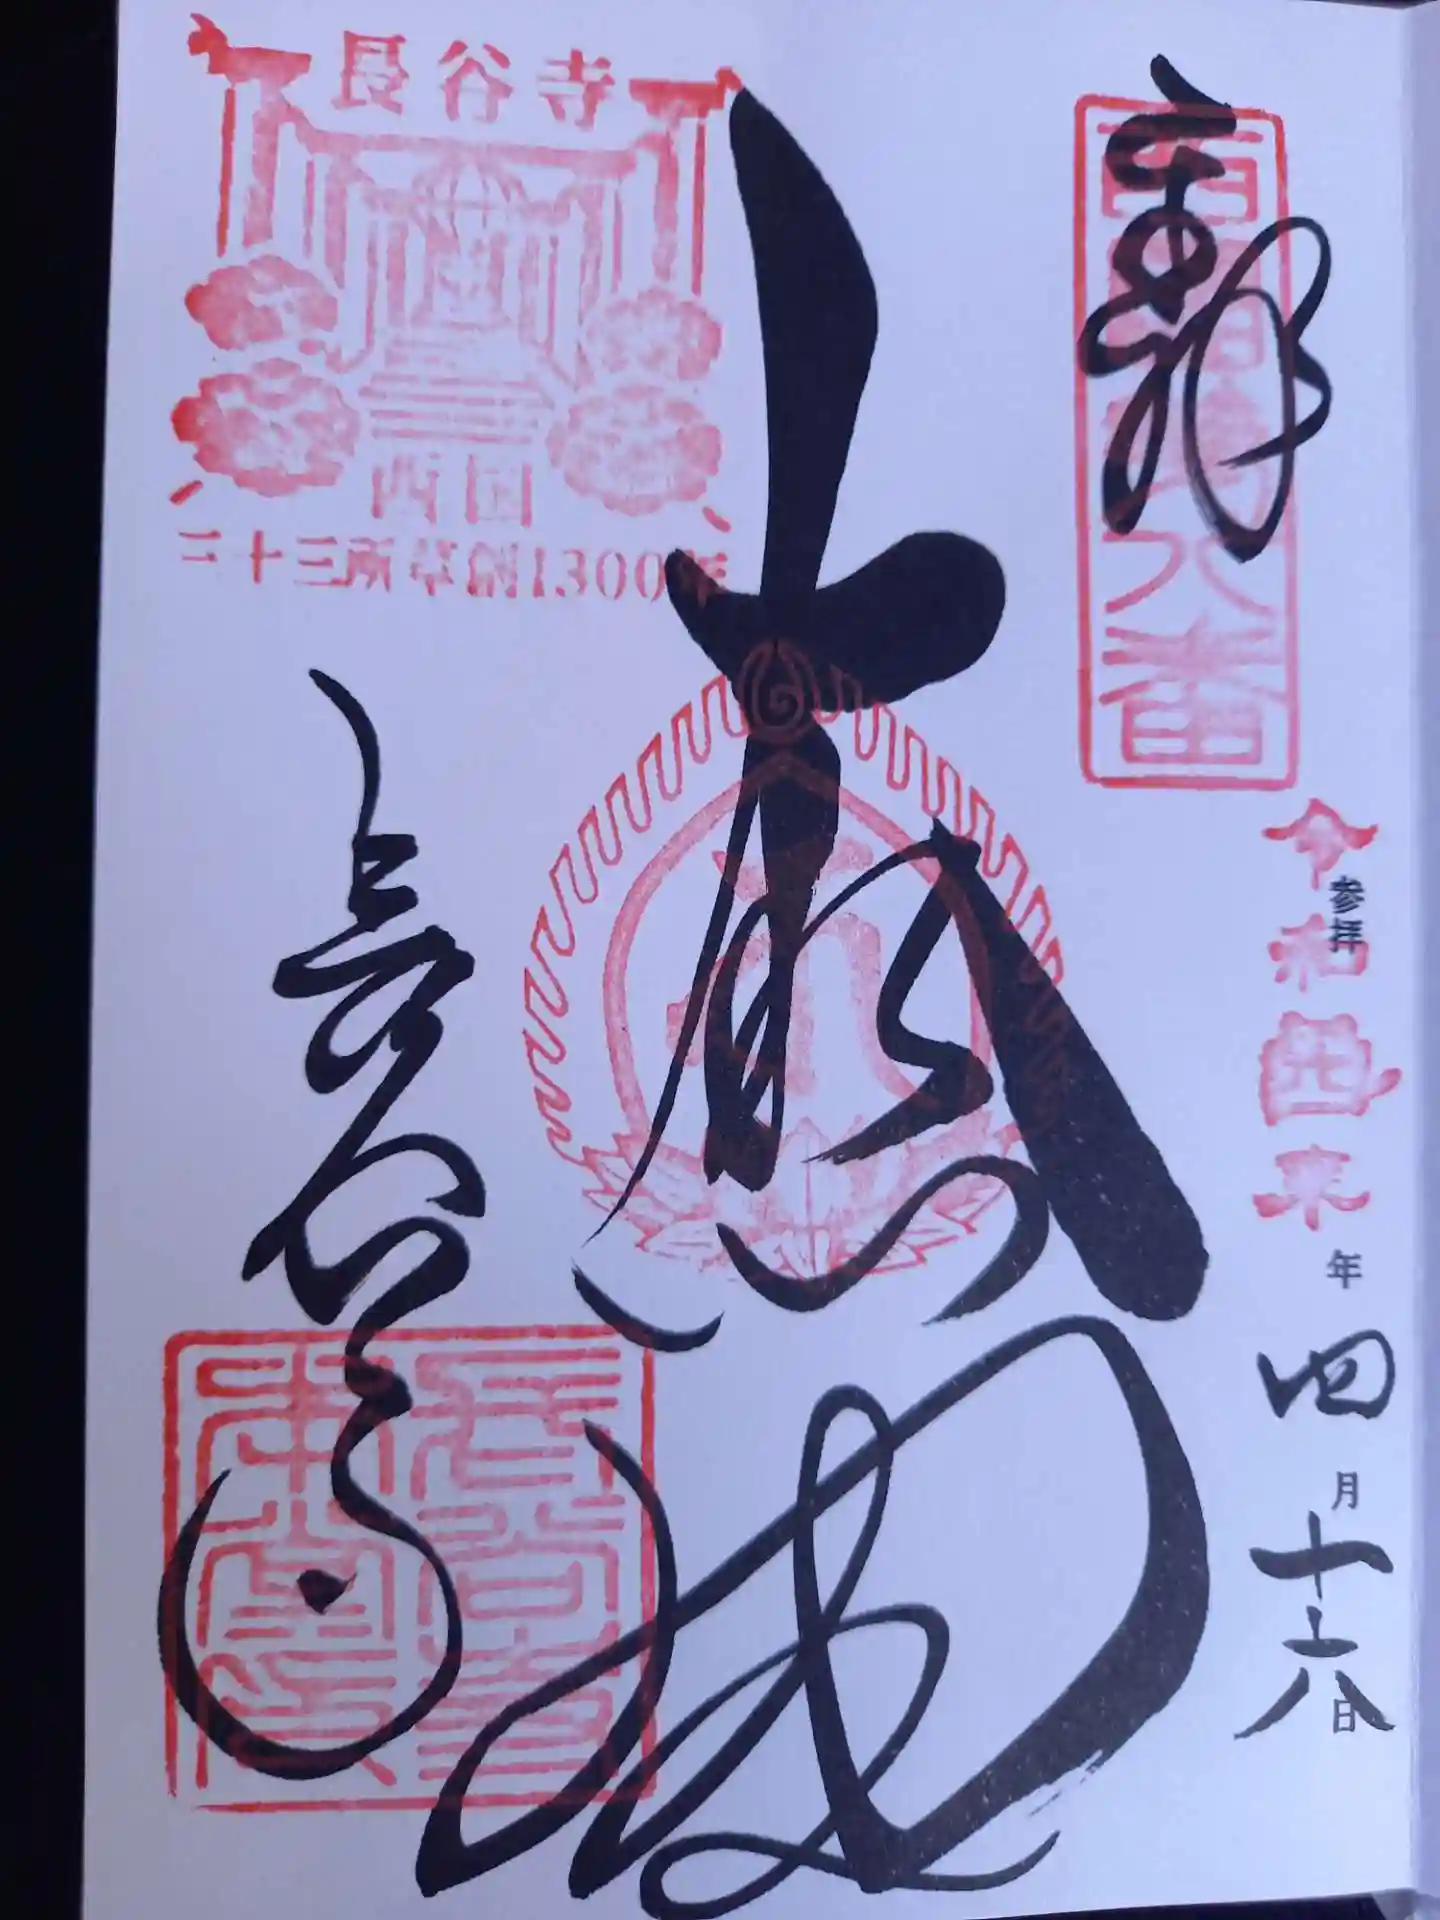 奉拝
西国第八番
参拝
令和四年
四月十六日
大悲閣
長谷寺
長谷寺
西国
三十三所草創1300年